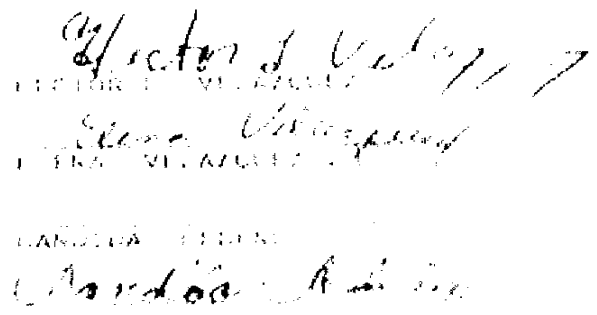 Hector J Velazquez
HECTOR J VELAZQUEZ
Elena Velazquez
ELENA VELAZQUEZ
CANDIDA
Candida